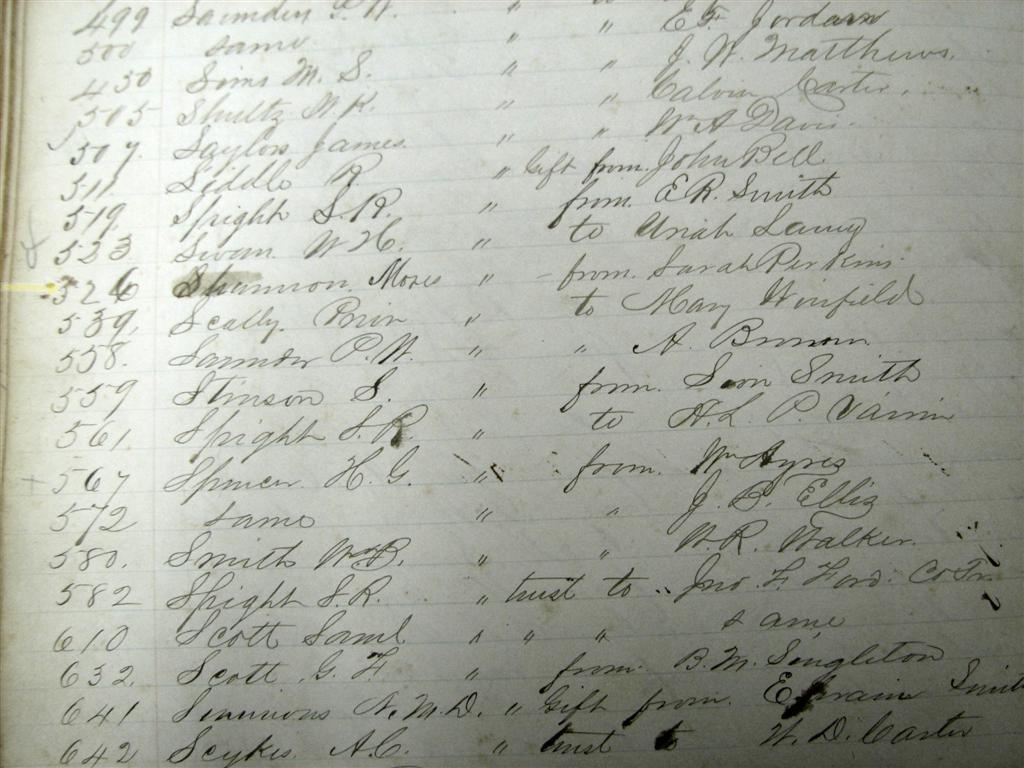 499 Saunders P. W. " " E F Jordan
500 same " " J. W. Matthews.
450 Sims M. S. " " Calvin Carter.
505 Shultz W. K. " " Wm A Davis.
507. Saylors James " Gift from John Bell
511. Siddle R " from E R. Smith
519. Spight S. R. " to Uriah
523 Swan W H. " from Sarah Perkins
526 Shannon Moses " to Mary Winfield
539. Scally " " A.
558. Saunders P. W. " from Smith
559 Stinson S. " to H. L. P.
561. Spight S. R. " from Wm Ayres
567 Spencer H. G. " J. B.
572 same " " W. R. Walker
580. Smith Wm B. " "
582 Spight S. R. " trust to " Jno. F Ford. Co Tr.
610 Scott Saml " " " same
632. Scott G. F " from B. M. Singleton
641 Simmons N. M. D. " Gift from Ephraim Smith
642 Scykes A C. " trust to W. D. Carter